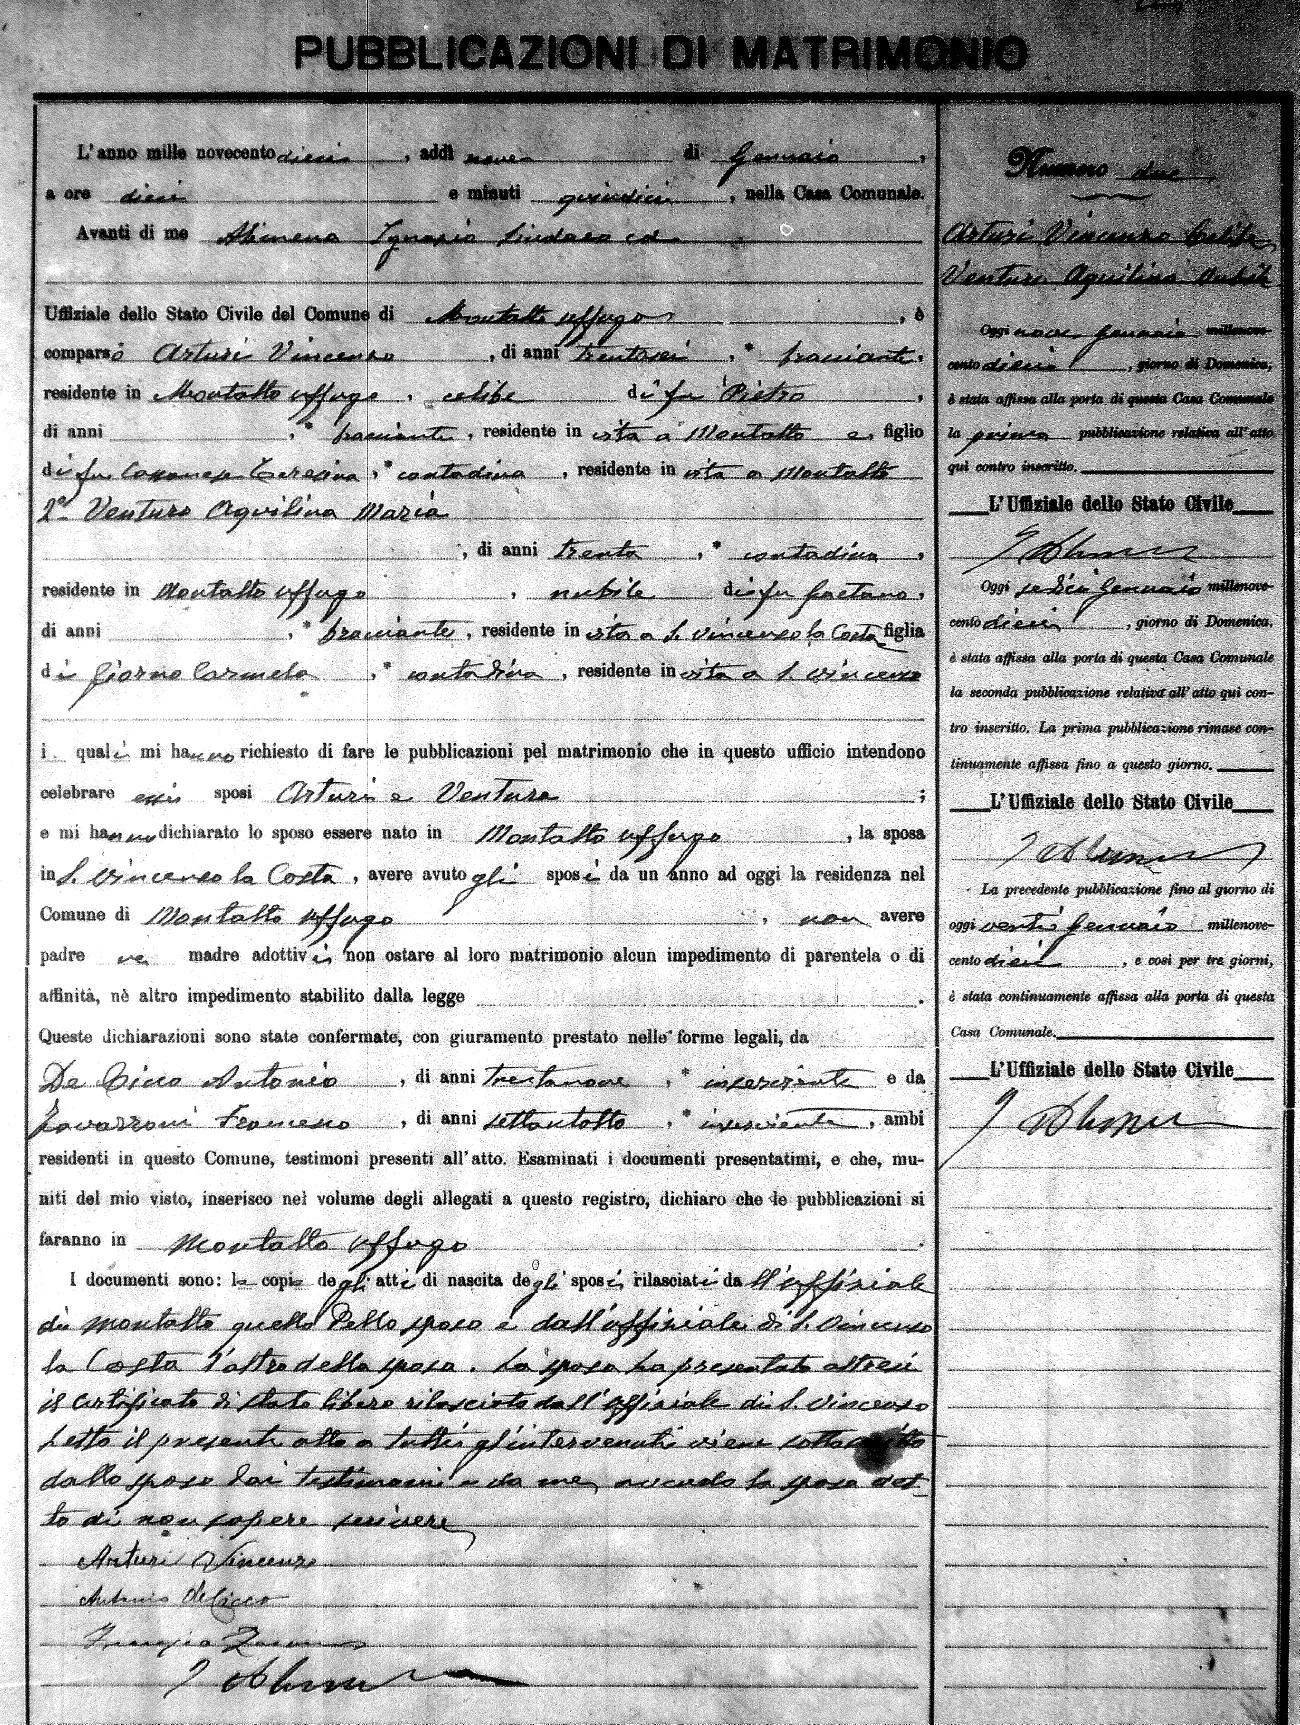 PUBBLICAZIONI DI MATRIMONIO
L'anno mille novecento dieci, addì nove di Gennaio,
a ore dieci e minuti quindici, nella Casa Comunale.
Avanti di me Alimena Ignazio Sindaco ed
Uffiziale dello Stato Civile del Comune di Montalto Uffugo, è
comparso Arturi Vincenzo, di anni trentasei, * bracciante,
residente in Montalto Uffugo, celibe di fu Pietro,
di anni , * bracciante, residente in vita a Montalto e, figlio
di fu Teresina, * contadina, residente in vita a Montalto
2a Venturo Aquilina Maria
, di anni trenta, * contadina,
residente in Montalto Uffugo, nubile di fu Gaetano,
di anni , * bracciante, residente in vita a S. Vincenzo la Costa figlia
di Giorno Carmela, * contadina, residente in vita a S. Vincenzo
i quali mi hanno richiesto di fare le pubblicazioni pel matrimonio che in questo ufficio intendono
celebrare essi sposi Arturi e Ventura;
e mi hanno dichiarato lo sposo essere nato in Montalto Uffugo, la sposa
in S. Vincenzo la Costa, avere avuto gli sposi da un anno ad oggi la residenza nel
Comune di Montalto Uffugo, non avere
padre ne madre adottivi non ostare al loro matrimonio alcun impedimento di parentela o di
affinità, nè altro impedimento stabilito dalla legge .
Queste dichiarazioni sono state confermate, con giuramento prestato nelle forme legali, da
De Cicco Antonio, di anni trentanove, * inserviente e da
Zavarroni Francesco, di anni settantotto, * inserviente, ambi
residenti in questo Comune, testimoni presenti all'atto. Esaminati i documenti presentatimi, e che, mu-
niti del mio visto, inserisco nel volume degli allegati a questo registro, dichiaro che le pubblicazioni si
faranno in Montalto Uffugo.
I documenti sono: le copie degli atti di nascita degli sposi, rilasciati da ll'uffiziale
di Montalto quello dello sposo e dall'uffiziale di S. Vincenzo
la Costa l'altro della sposa. La sposa ha presentato altresì
il certificato di stato libero rilasciato dall'uffiziale di S. Vincenzo
Letto il presente atto a tutti gl'intervenuti viene sottoscritto
dallo sposo dai testimoni e da me, avendo la sposa det-
to di non sapere scrivere
Arturi Vincenzo
Antonio de Cicco
I Alimena
Numero due
Arturi Vincenzo Celibe
Venturo Aquilina nubile
Oggi nove Gennaio millenove-
cento dieci, giorno di Domenica,
è stata affissa alla porta di questa Casa Comunale
la prima pubblicazione relativa all'atto
qui contro inscritto.
L'Uffiziale dello Stato Civile
I Alimena
Oggi sedici Gennaio millenove-
cento dieci, giorno di Domenica,
è stata affissa alla porta di questa Casa Comunale
la seconda pubblicazione relativa all'atto qui con-
tro inscritto. La prima pubblicazione rimase con-
tinuamente affissa fino a questo giorno.
L'Uffiziale dello Stato Civile
I Alimena
La precedente pubblicazione fino al giorno di
oggi venti Gennaio millenove-
cento dieci, e così per tre giorni,
è stata continuamente affissa alla porta di questa
Casa Comunale.
L'Uffiziale dello Stato Civile
I Alimena